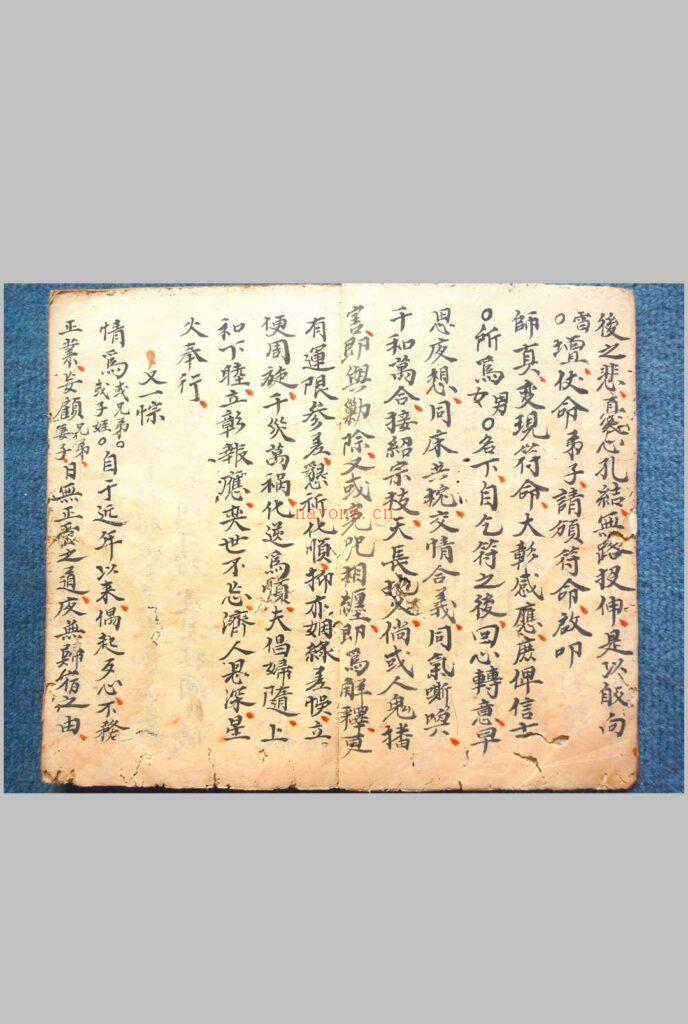 後之悲直衷心孔結無路投伸是以皈向
雷○壇仗命弟子請頒符命啟叩
師真变現符命大彰感應庶俾信士
○所為男女○名下自乞符之後回心轉意早
思夜想同床共枕交情合義同氣嘶
千和萬合接紹宗枝天長地久倘或人鬼播
害即與勦除又或冤咒相纏即為觧釋更
有運限參差懇祈化順抑亦姻緣差悞立
便周旋千災萬禍化送為願夫倡婦隨上
和下睦立彰報應奕世不忘濟人恩深星
火奉行
又一宗
情為或兄弟或子姪○自于近年以来偶起歹心不務
正業妄顧兄弟妻子日無正之通夜無歸宿之由
nayona.cn